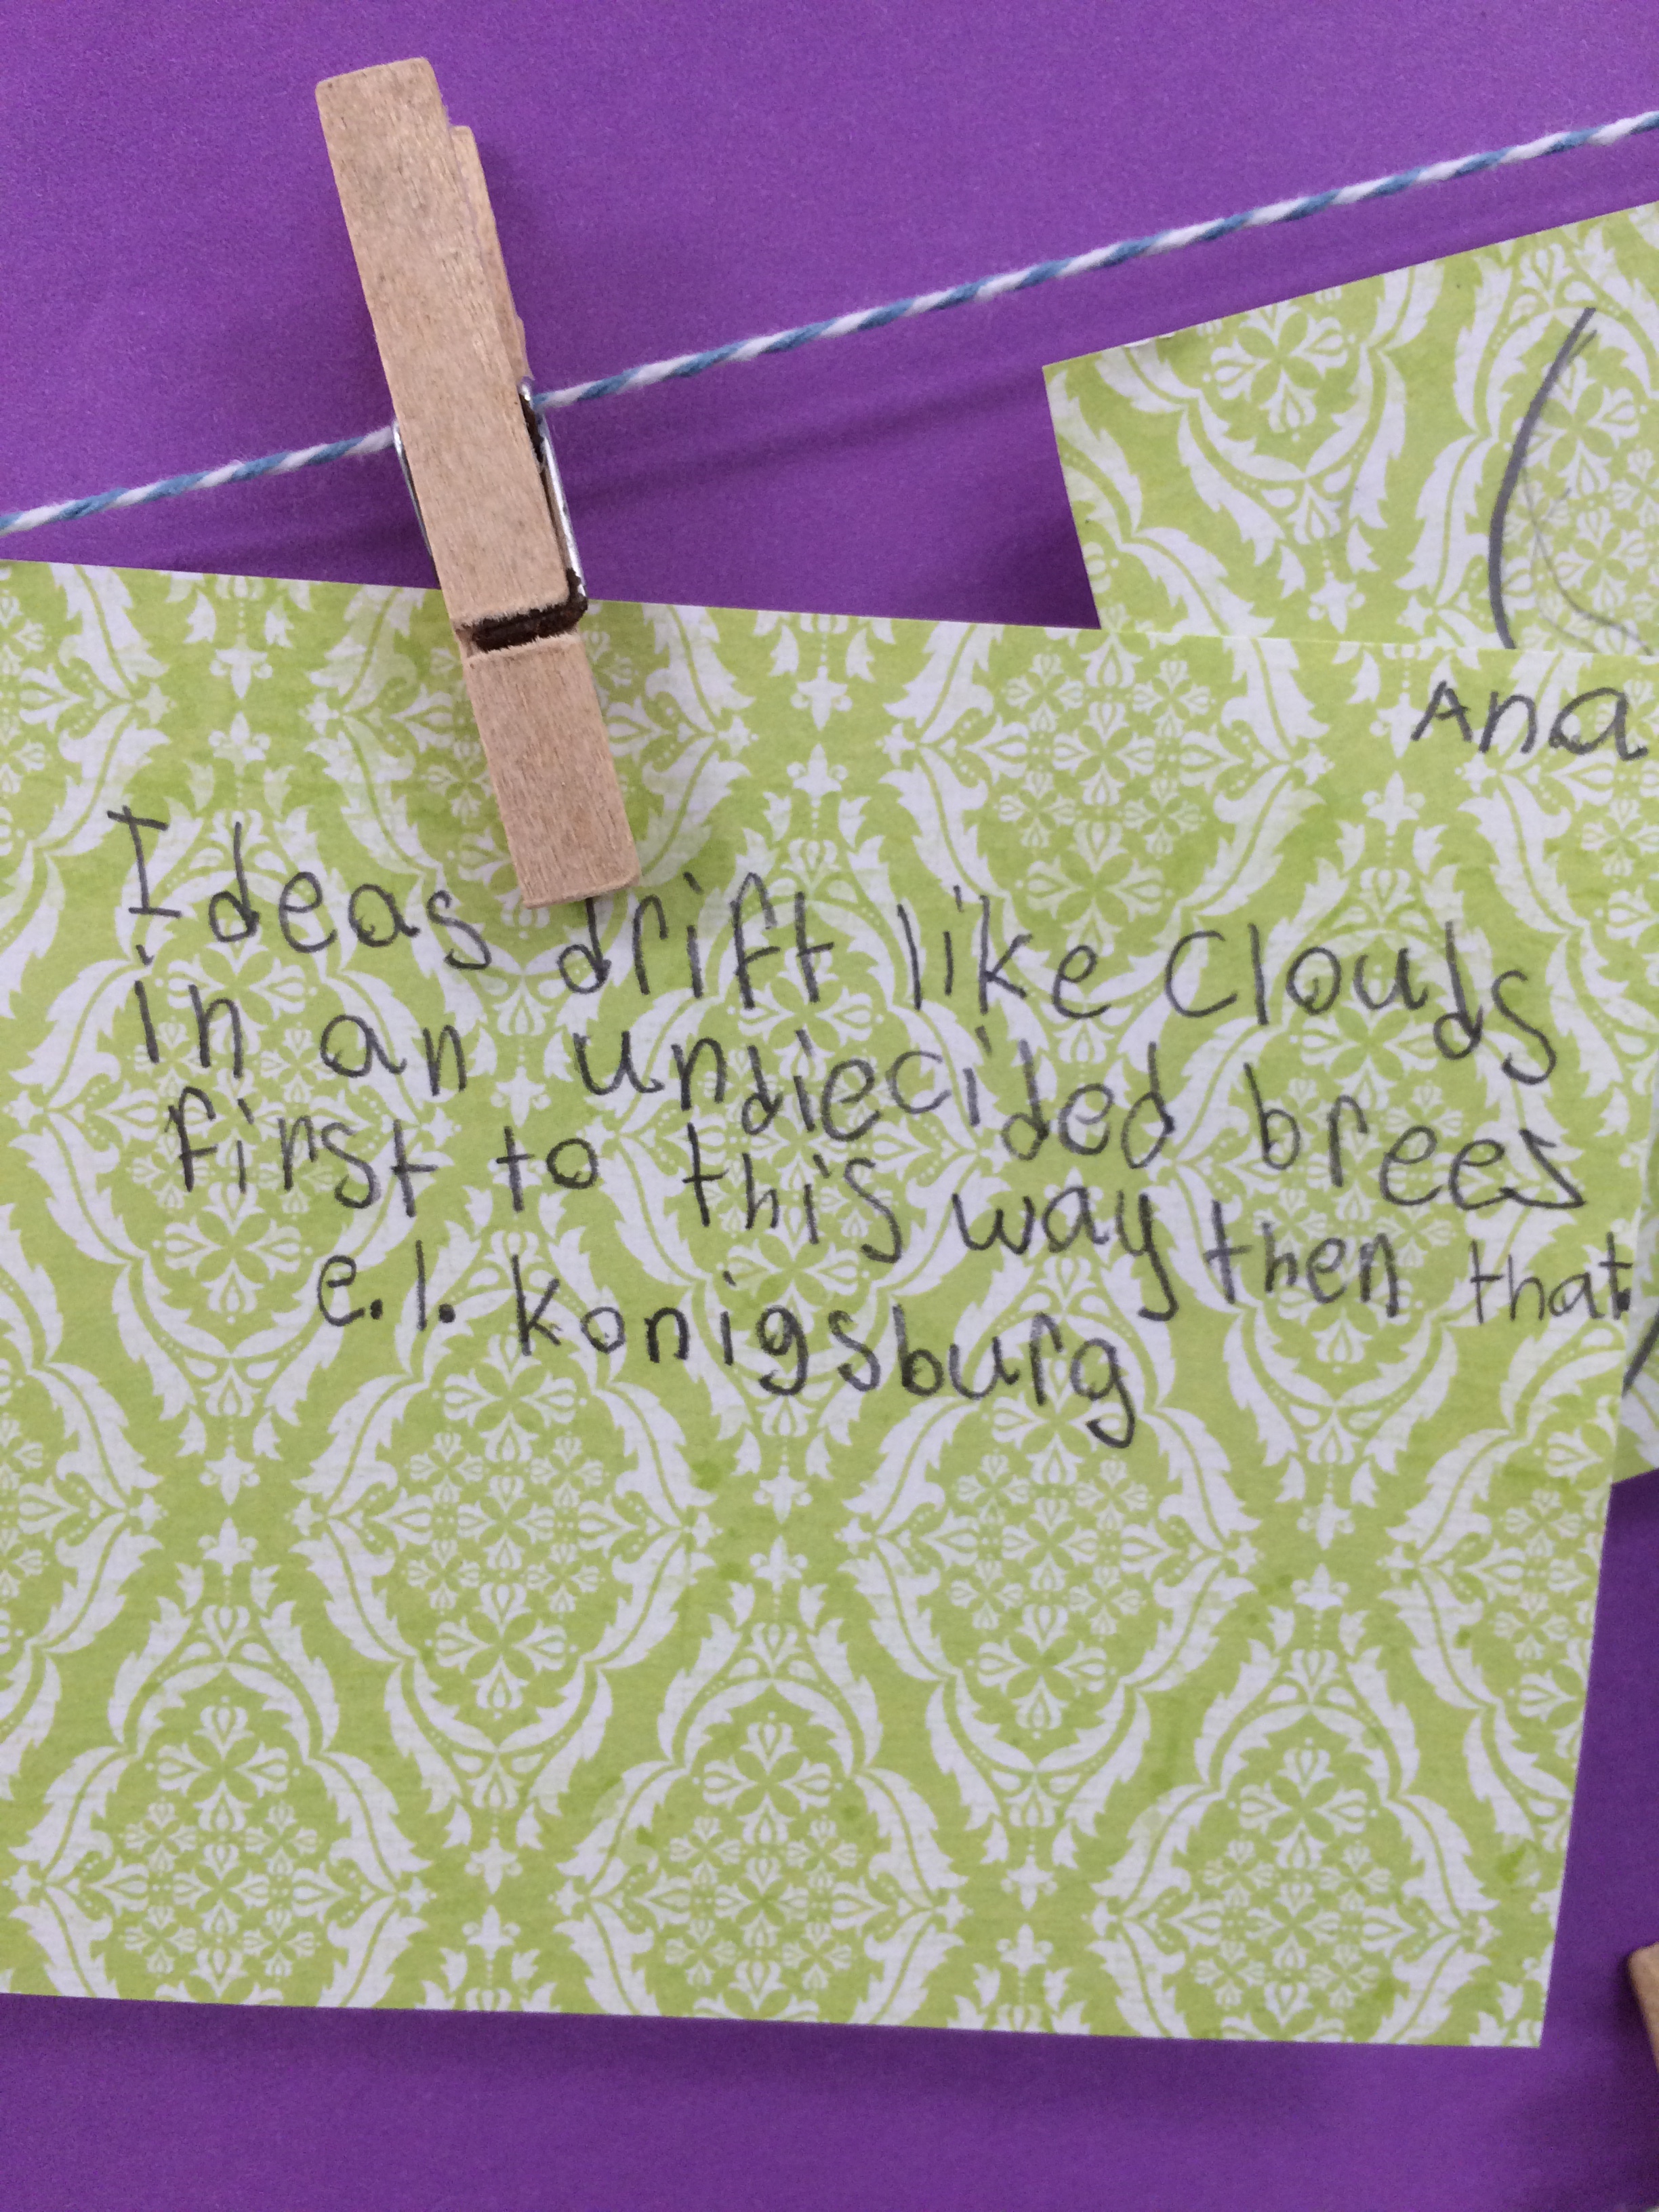 Ana
Ideas drift like Clouds
in an undiecided brees
first to this way then that.
e.l. konigsburg